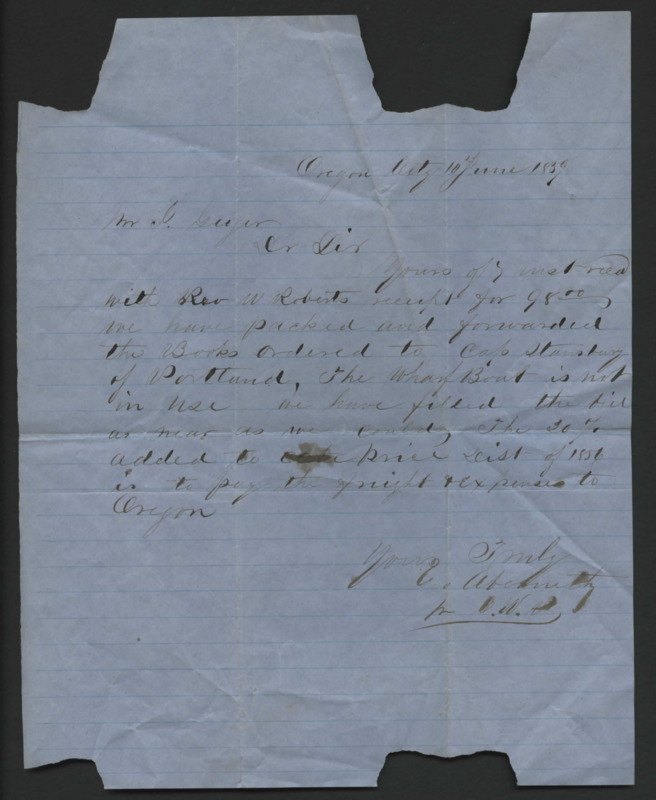 Oregon City 10 June 1859
Mr. G. Geiger
Dr Sir
Yours of 7 inst recd
with Rev W Roberts receipt for 98.00,
we have packed and forwarded
the Books ordered to Cap Stansbury
of Portland, The Wharf Boat is not
in use we have filled the bill
as near as we could, The 20 %
added to Price List of 1856
is to pay the freight & expenses to
Oregon
Yours Truly
Abernethy